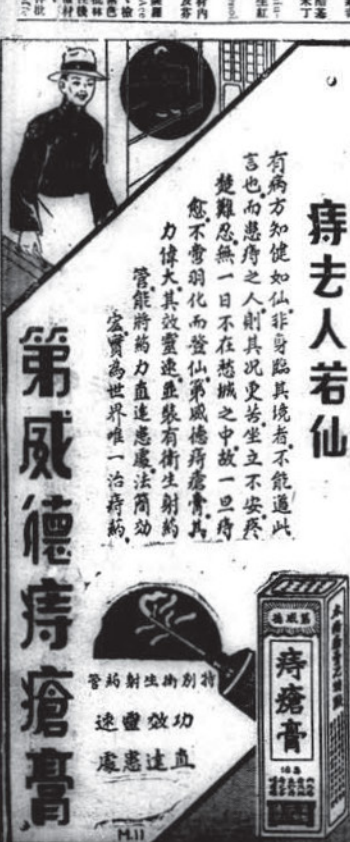 痔去人若仙
有病方知健如仙非身臨其境者不能道此
言也而患痔之人則其况更苦坐立不安疼
楚難忍無一日不在愁城之中故一旦痔
愈不啻羽化而登仙第威德痔瘡膏其
力偉大其效靈速並裝有衛生射葯
管能將葯力直達患處法簡効
宏實為世界唯一治痔葯
第威德痔瘡膏
管葯射生衛別特
速靈效功
處患達直
德威第
痔瘡膏
M.11